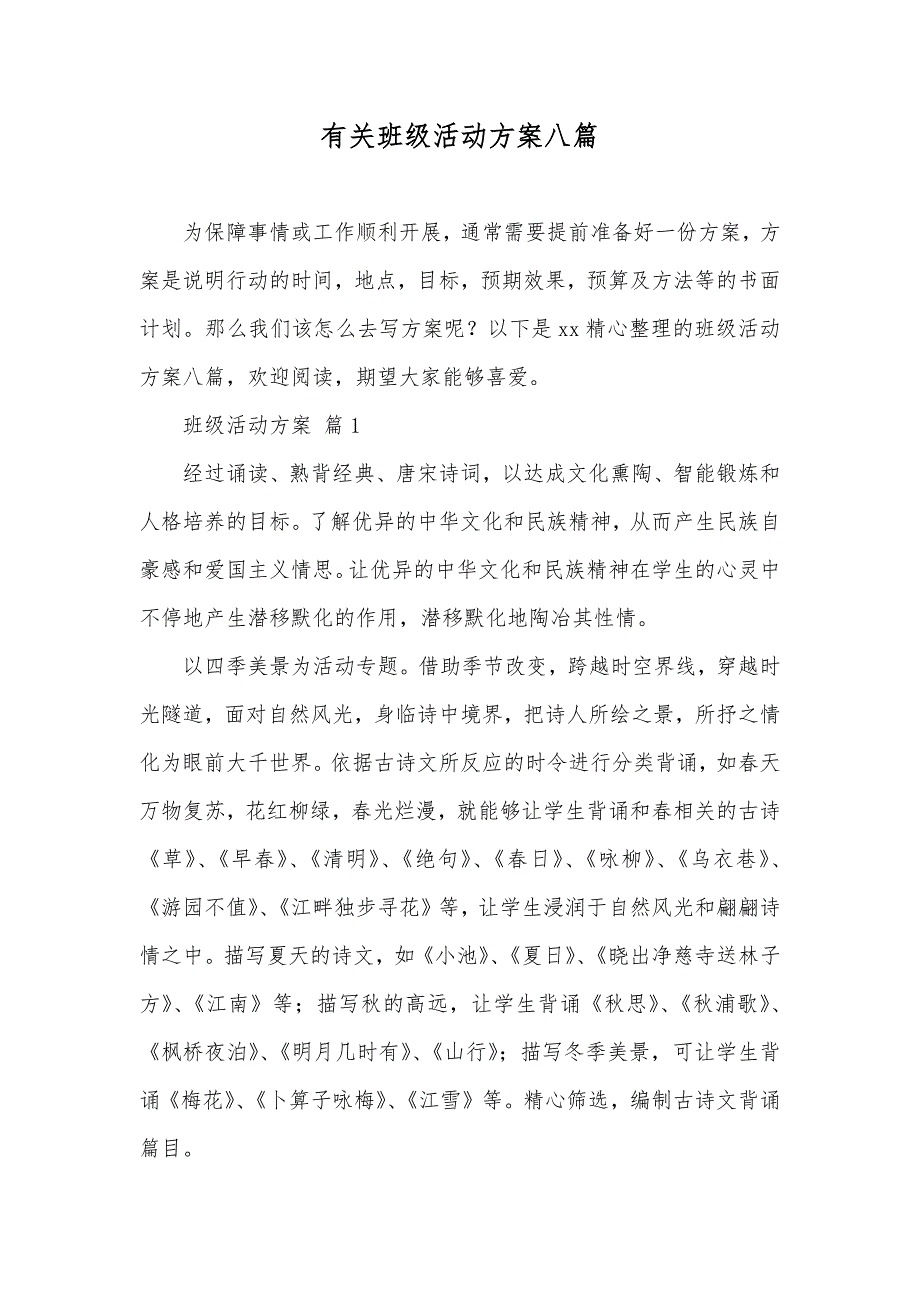 有关班级活动方案八篇
为保障事情或工作顺利开展，通常需要提前准备好一份方案，方
案是说明行动的时间，地点，目标，预期效果，预算及方法等的书面
计划。那么我们该怎么去写方案呢？以下是 xx 精心整理的班级活动
方案八篇，欢迎阅读，期望大家能够喜爱。
班级活动方案 篇 1
经过诵读、熟背经典、唐宋诗词，以达成文化熏陶、智能锻炼和
人格培养的目标。了解优异的中华文化和民族精神，从而产生民族自
豪感和爱国主义情思。让优异的中华文化和民族精神在学生的心灵中
不停地产生潜移默化的作用，潜移默化地陶冶其性情。
以四季美景为活动专题。借助季节改变，跨越时空界线，穿越时
光隧道，面对自然风光，身临诗中境界，把诗人所绘之景，所抒之情
化为眼前大千世界。依据古诗文所反应的时令进行分类背诵，如春天
万物复苏，花红柳绿，春光烂漫，就能够让学生背诵和春相关的古诗
《草》、《早春》、《清明》、《绝句》、《春日》、《咏柳》、《乌衣巷》、
《游园不值》、《江畔独步寻花》等，让学生浸润于自然风光和翩翩诗
情之中。描写夏天的诗文，如《小池》、《夏日》、《晓出净慈寺送林子
方》、《江南》等；描写秋的高远，让学生背诵《秋思》、《秋浦歌》、
《枫桥夜泊》、《明月几时有》、《山行》；描写冬季美景，可让学生背
诵《梅花》、《卜算子咏梅》、《江雪》等。精心筛选，编制古诗文背诵
篇目。